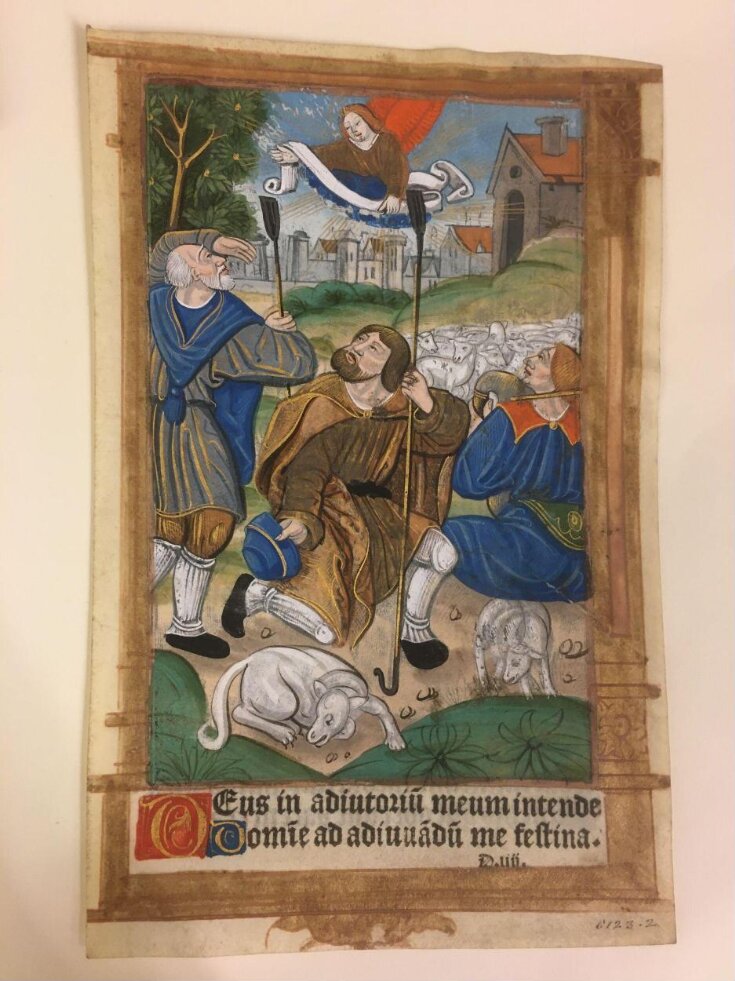 DEus in adiutoriū meum intende
Domīe ad adiuuādū me festina.
D.iiii.
6123.2